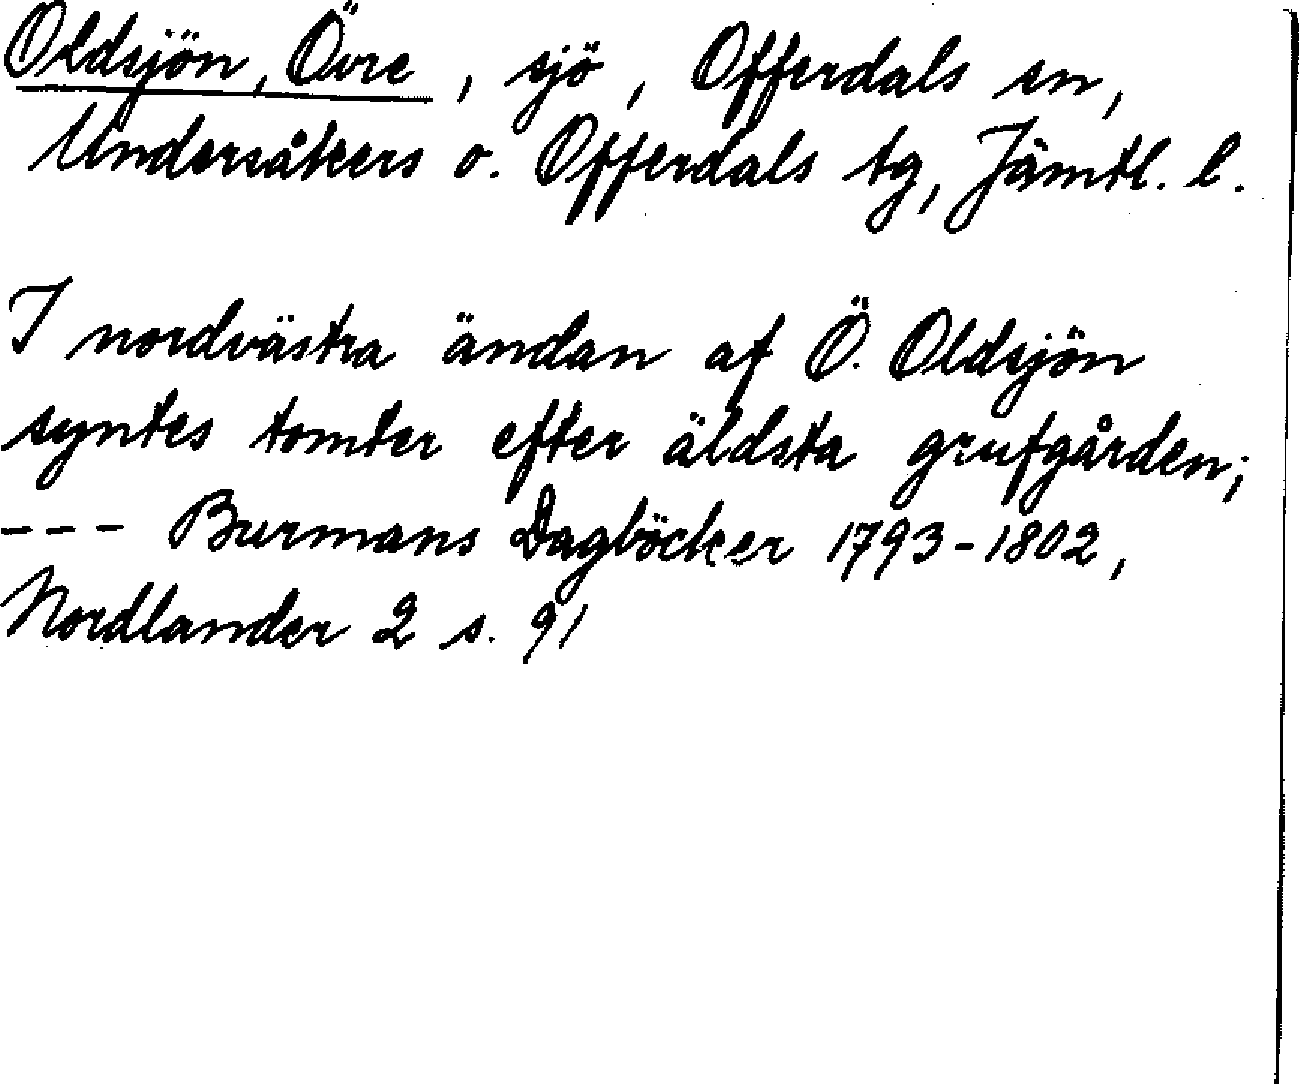 Oldsjön, Övre, sjö, Offerdals sn,
Undersåkers o. Offerdals tg, Jämtl. l.
I nordvästra ändan af Ö. Oldsjön
syntes tomter efter äldsta grufgården;
--- Burmans Dagböcker 1793-1802,
Nordlander 2 s. 91